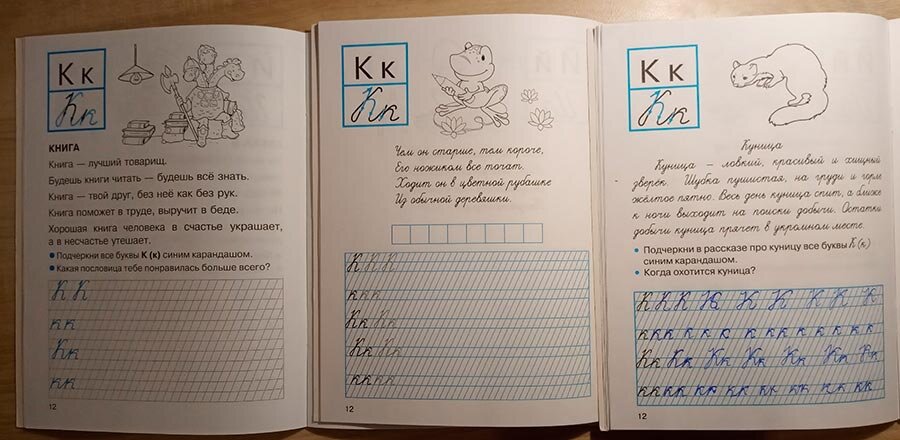 К к
К к
КНИГА
Книга — лучший товарищ.
Будешь книги читать — будешь всё знать.
Книга — твой друг, без неё как без рук.
Книга поможет в труде, выручит в беде.
Хорошая книга человека в счастье украшает,
а в несчастье утешает.
Подчеркни все буквы К (к) синим карандашом.
Какая пословица тебе понравилась больше всего?
К К
к к
Кк
кк
12
К к
К к
Чем он старше, тем короче,
Его ножиком все точат.
Ходит он в цветной рубашке
Из обычной деревяшки.
К К К
к к к
Кк Кк
Кк Кк
кк кк
12
К к
К к
Куница
Куница — ловкий, красивый и хищный
зверёк. Шубка пушистая, на груди и горле
жёлтое пятно. Весь день куница спит, а ближе
к ночи выходит на поиски добычи. Остатки
добычи куница прячет в укромном месте.
Подчеркни в рассказе про куницу все буквы К (к)
синим карандашом.
Когда охотится куница?
К К К К К К К К К
к к к к к к к к к к к к
Кк Кк Кк Кк Кк Кк Кк
кк кк кк кк кк кк кк кк
12